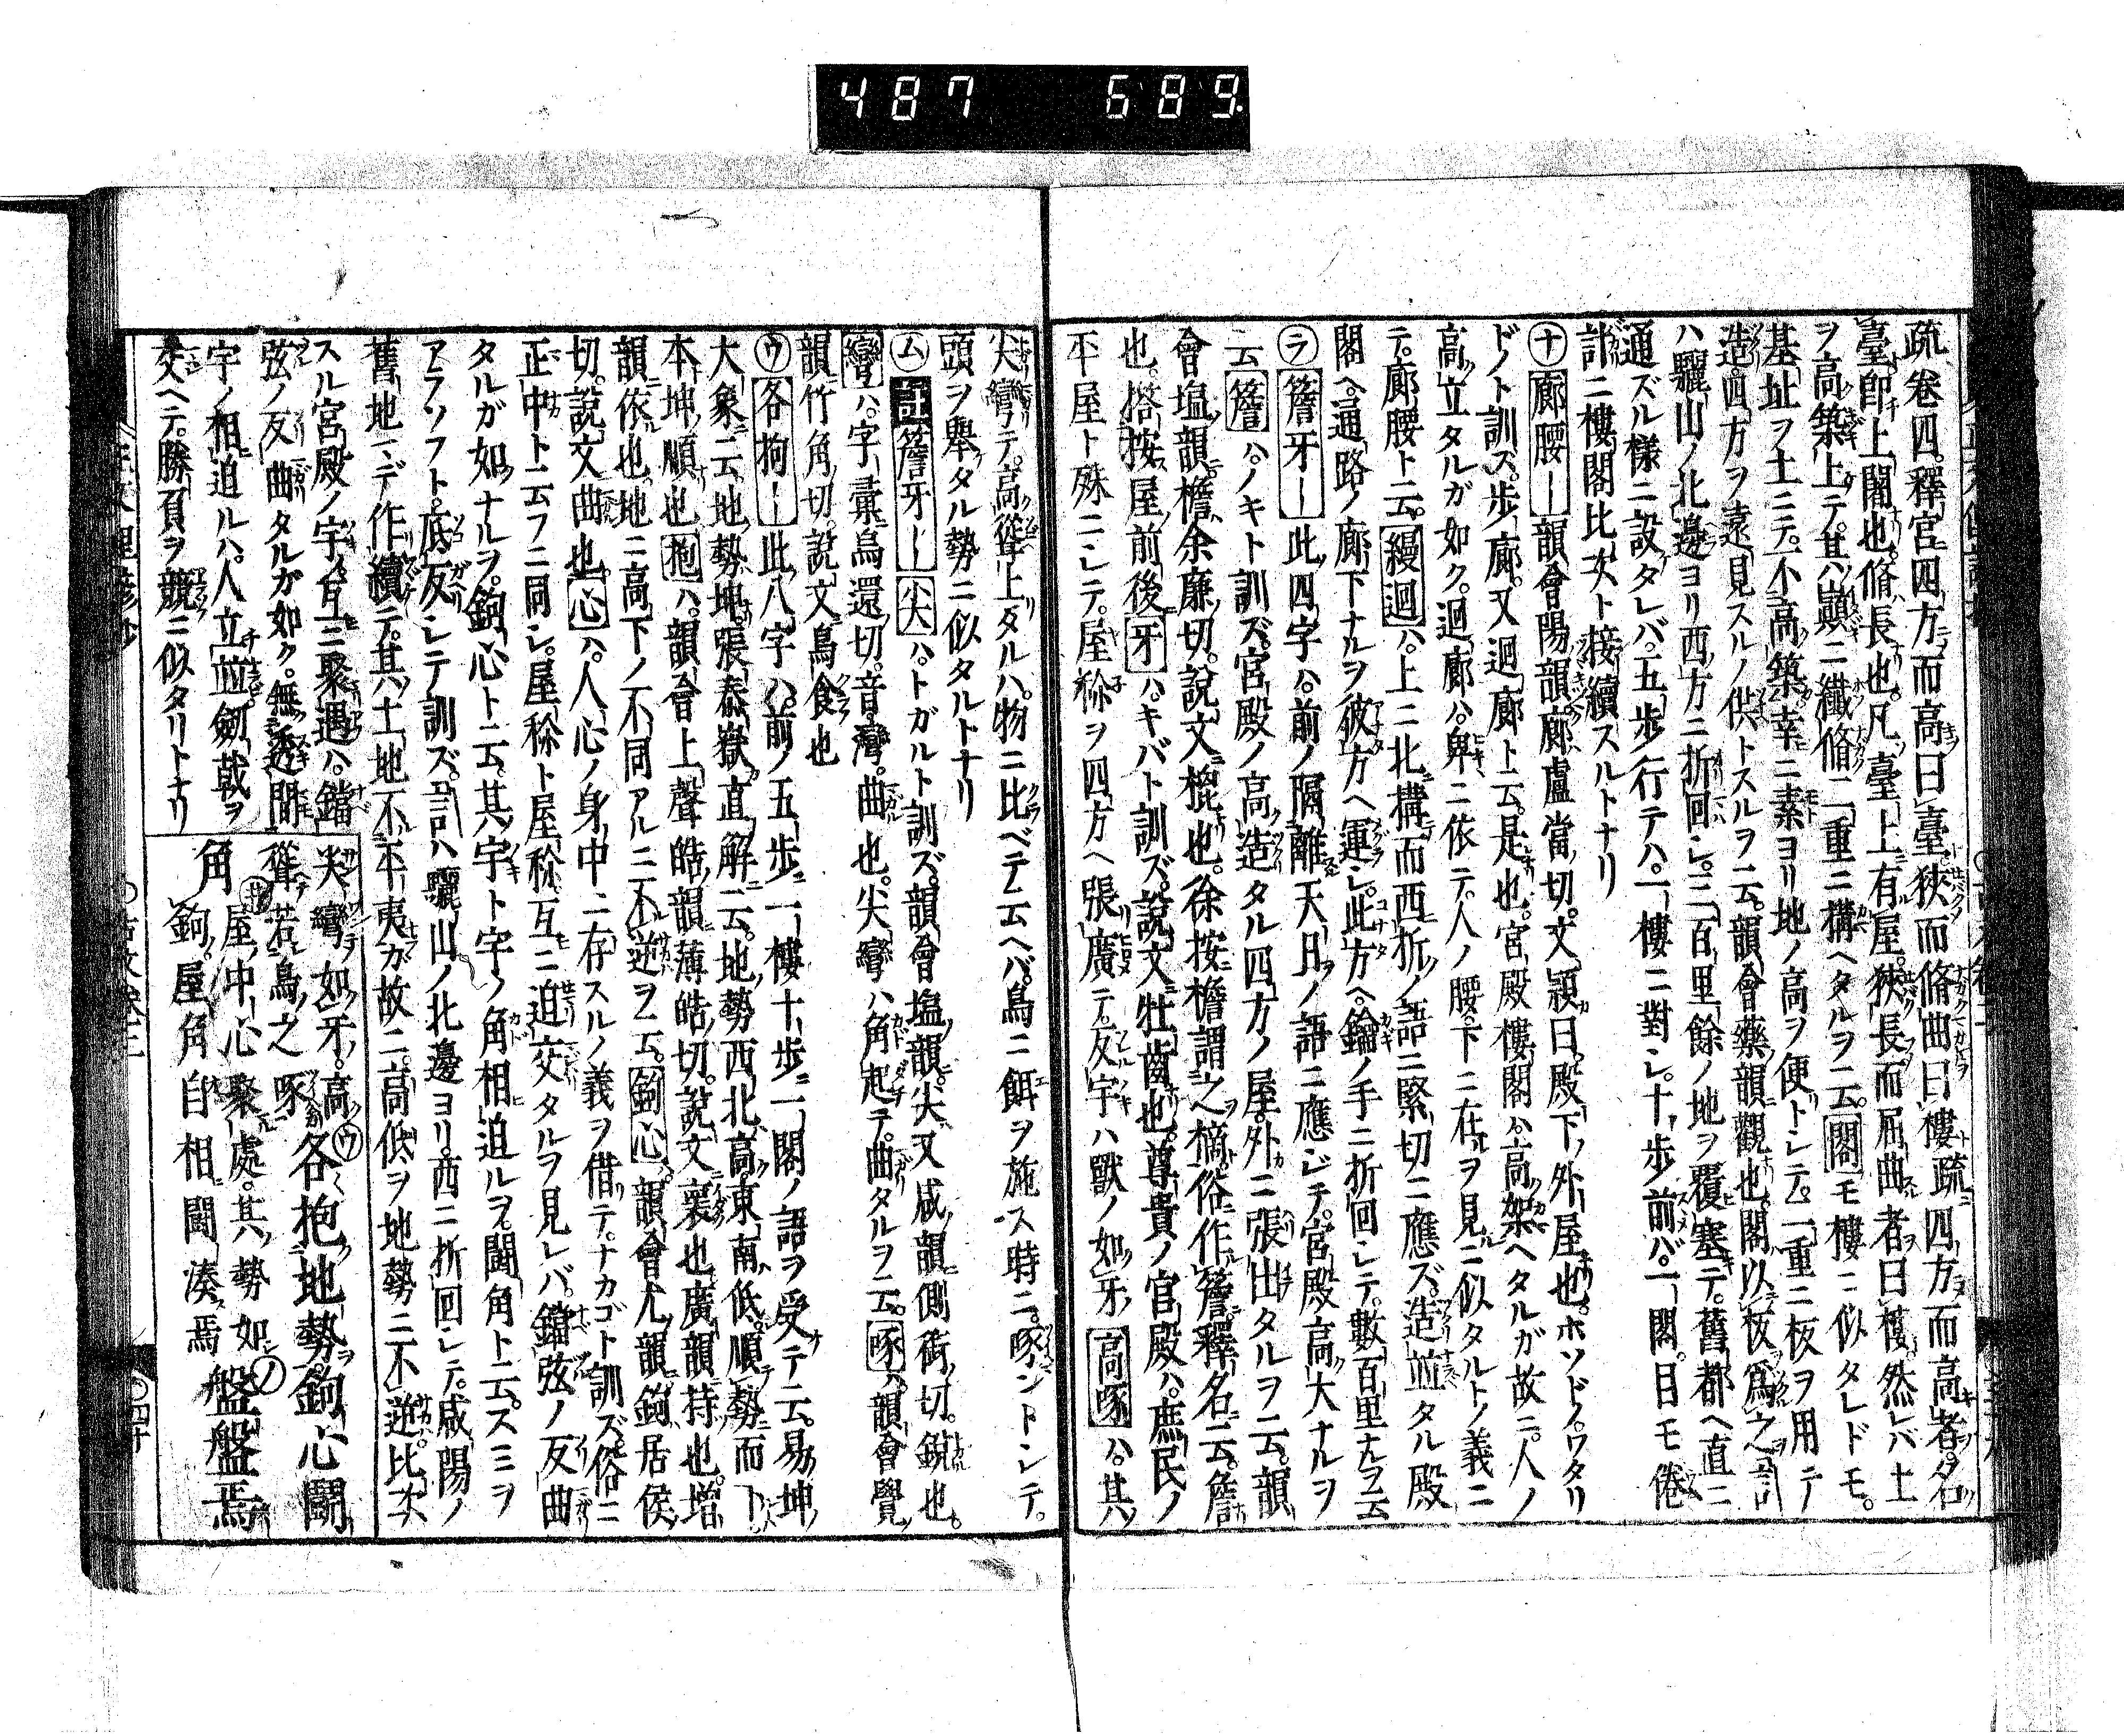 487 689
疏卷四。釋宮四方而高曰臺。狹而脩曲曰樓疏四方而高者名
臺卽上闍也。脩長也。凡臺上有屋。狹長而屈曲者曰樓然レバ土
ヲ高築上テ。其巓ニ纖脩二重ニ構ヘタルヲ云。閣モ樓ニ似タレドモ。
基址ヲ土ニテ。不高築。幸ニ素ヨリ地ノ高ヲ便トシテ。二重ニ板ヲ用テ
造。四方ヲ遠見スルノ供トスルヲ云。韻會藥韻觀也。閣以板爲之言
ハ驪山ノ北邊ヨリ西方ニ折回シ。三百里餘ノ地ヲ覆塞テ。舊都ヘ直ニ
通ズル樣ニ設タレバ。五步行テハ。一樓ニ對シ。十步前バ。一閣。目モ倦
計ニ樓閣比次ト接續スルトナリ
ナ廊腰ー韻會陽韻廊盧當切。文頴曰殿下外屋也。ホソドノワタリ
ドノト訓ス。步廊。又迴廊ト云。是也。宮殿樓閣ハ高架ヘタルガ故ニ。人ノ
高立タルガ如ク。迴廊ハ。卑ニ依テ。人ノ腰。下ニ在ヲ見ニ似タルトノ義ニ
テ。廊腰ト云。縵迴ハ。上ニ北構而西折ノ語ニ緊切ニ應ズ。造並タル殿
閣ヘ。通路ノ廊下ナルヲ彼方ヘ運シ。此方ヘ。鑰ノ手ニ折回シテ。數百里ナルヲ云
ラ簷牙ー此四字ハ。前ノ隔離天日ノ語ニ應ジテ。宮殿高大ナルヲ
云簷ハノキト訓ズ。宮殿ノ高造タル四方ノ屋。外ニ張出タルヲ云。韻
會塩韻檐余廉切。說文㮰也。徐按檐謂之樀。俗作簷釋名云。簷
也。㙮按屋前後牙ハ。キバト訓ズ。說文牡齒也。尊貴ノ官殿ハ。庶民ノ
平屋ト殊ニシテ。屋稌ヲ四方ヘ張廣テ。反宇ハ獸ノ如牙高啄ハ。其
尖彎テ。高聳上タルハ。物ニ比ベテ云ヘバ。鳥ニ餌ヲ施ス時ニ。啄ントシテ。
頭ヲ舉タル勢ニ似タルトナリ
ム註簷牙ー尖ハ。トガルト訓ズ。韻會塩韻。尖又咸韻側銜切。銳也。
彎ハ。字彙烏還切。音灣。曲也。尖彎ハ角起テ。曲タルヲ云。啄ハ韻會覺
韻竹角切。說文鳥食也
ウ各抱ー此八字ハ。前ノ五步ニ一樓十步ニ一閣ノ語ヲ受テ云。易坤
大象ニ云。地勢坤。張泰嶽直解ニ云。地勢西北高東南低。順勢而下。
本坤順也抱ハ。韻會上聲皓韻薄皓切。說文褱也廣韻持也。增
韻依也。地ニ高下ノ不同アルニ不逆ヲ云。鉤心。韻會尤韻鉤居侯
切。說文曲也。心ハ。人心ノ身中ニ存スルノ義ヲ借テ。ナカゴト訓ズ。俗ニ
正中ト云フニ同シ。屋稌ト屋稌互ニ迫交タルヲ見レバ。鐺弦ノ反曲
タルガ如ナルヲ。鉤心ト云。其宇ト宇ノ角相迫ルヲ。鬪角ト云。スミヲ
アラソフト。底反シテ訓ズ。言ハ驪山ノ北邊ヨリ。西ニ折回シテ。咸陽ノ
舊地ニデ作續テ。其土地不平夷カ故ニ。高低ヲ地勢ニ不逆比次
スル宮殿ノ宇。互ニ聚遇ハ。鐺
弦ノ反曲タルガ如ク。無透間
宇ノ相迫ルハ。人立並。劒戟ヲ
交ヘテ。勝負ヲ競ニ似タリトナリ
尖彎如牙。高
聳若鳥之啄
ウ各抱地勢。鉤心鬪
角
註屋中心聚處。其勢如
鉤。屋角自相鬪湊焉
ノ盤盤焉